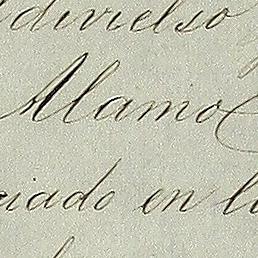 divielso
Alamo
ciado en l